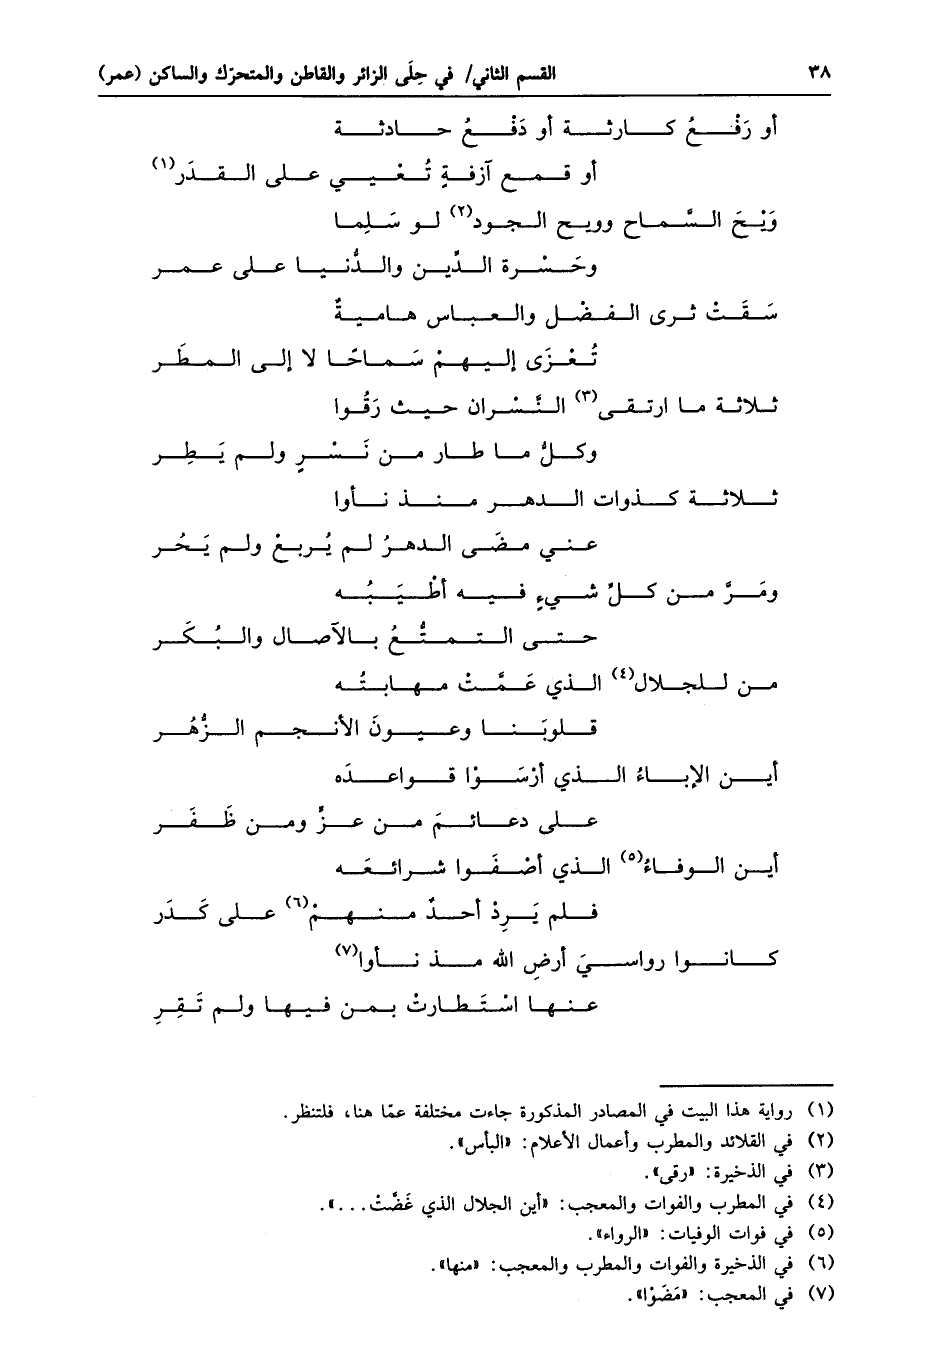 ٣٨ القسم الثاني/ في حِلَى الزائر والقاطن والمتحرّك والساكن (عمر)
أو رَفْعُ كارثة أو دَفْعُ حادثة
أو قمع آزفةٍ تُعْيي على القدَر(١)
وَيْحَ السَّماح وويح الجود(٢) لو سَلِما
وحَسْرة الدِّين والدُّنيا على عمر
سَقَتْ ثرى الفضْل والعباس هاميةٌ
تُعْزَى إليهمْ سَماحًا لا إلى المطَر
ثلاثة ما ارتقى(٣) النَّسْران حيث رَقُوا
وكلُّ ما طار من نَسْرٍ ولم يَطِر
ثلاثة كذوات الدهر منذ نأوا
عني مضَى الدهرُ لم يُربعْ ولم يَحُر
ومَرَّ من كلِّ شيءٍ فيه أطْيَبُه
حتى التمتُّعُ بالآصال والبُكَر
من للجلال(٤) الذي عَمَّتْ مهابتُه
قلوبَنا وعيونَ الأنجم الزُّهْر
أين الإباءُ الذي أرْسَوْا قواعدَه
على دعائمَ من عزٍّ ومن ظَفَر
أين الوفاءُ(٥) الذي أصْفَوا شرائعَه
فلم يَرِدْ أحدٌ منهمْ(٦) على كَدَر
كانوا رواسيَ أرضِ الله مذ نأوا(٧)
عنها اسْتَطارتْ بمن فيها ولم تَقِرِ
(١) رواية هذا البيت في المصادر المذكورة جاءت مختلفة عمّا هنا، فلتنظر.
(٢) في القلائد والمطرب وأعمال الأعلام: «البأس».
(٣) في الذخيرة: «رقى».
(٤) في المطرب والفوات والمعجب: «أين الجلال الذي غَضَّتْ...».
(٥) في فوات الوفيات: «الرواء».
(٦) في الذخيرة والفوات والمطرب والمعجب: «منها».
(٧) في المعجب: «مَضَوْا».